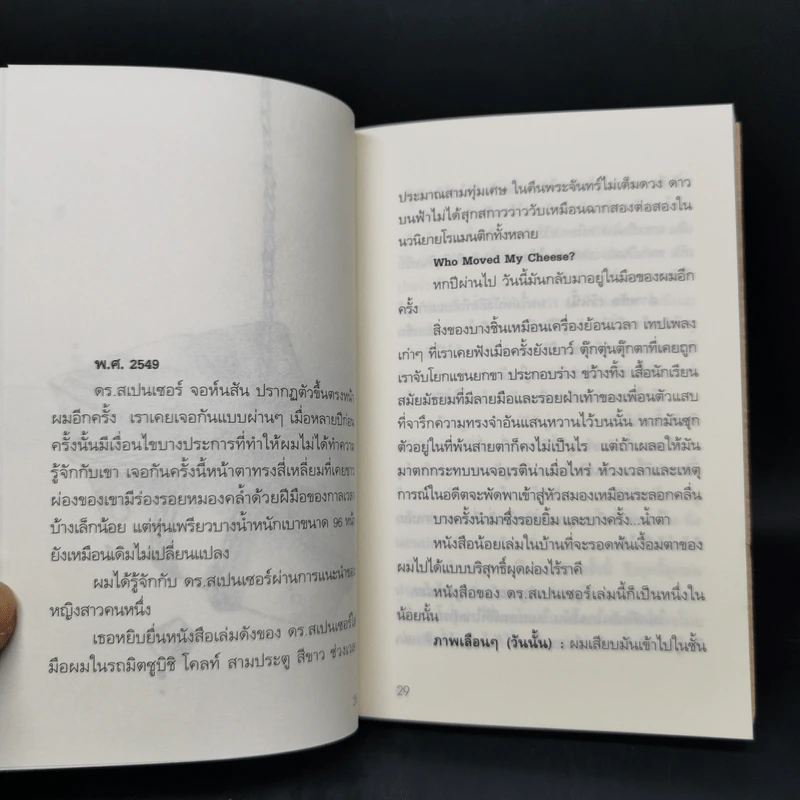 พ.ศ. 2549
ดร.สเปนเซอร์ จอห์นสัน ปรากฏตัวขึ้นตรงหน้า
ผมอีกครั้ง เราเคยเจอกันแบบผ่านๆ เมื่อหลายปีก่อน
ครั้งนั้นมีเงื่อนไขบางประการที่ทำให้ผมไม่ได้ทำความ
รู้จักกับเขา เจอกันครั้งนี้หน้าตาทรงสี่เหลี่ยมที่เคยขาว
ผ่องของเขามีร่องรอยหมองคล้ำด้วยฝีมือของกาลเวลา
บ้างเล็กน้อย แต่หุ่นเพรียวบางน้ำหนักเบาขนาด 96 หน้า
ยังเหมือนเดิมไม่เปลี่ยนแปลง
ผมได้รู้จักกับ ดร.สเปนเซอร์ผ่านการแนะนำของ
หญิงสาวคนหนึ่ง
เธอหยิบยื่นหนังสือเล่มดังของ ดร.สเปนเซอร์ใส่
มือผมในรถมิตซูบิชิ โคลท์ สามประตู สีขาว ช่วงเวลา
ประมาณสามทุ่มเศษ ในคืนพระจันทร์ไม่เต็มดวง ดาว
บนฟ้าไม่ได้สุกสกาววาววับเหมือนฉากสองต่อสองใน
นวนิยายโรแมนติกทั้งหลาย
Who Moved My Cheese?
หกปีผ่านไป วันนี้มันกลับมาอยู่ในมือของผมอีก
ครั้ง
สิ่งของบางชิ้นเหมือนเครื่องย้อนเวลา เทปเพลง
เก่าๆ ที่เราเคยฟังเมื่อครั้งยังเยาว์ ตุ๊กตุ่นตุ๊กตาที่เคยถูก
เราจับโยกแขนยกขา ประกอบร่าง ขว้างทิ้ง เสื้อนักเรียน
สมัยมัธยมที่มีลายมือและรอยฝ่าเท้าของเพื่อนตัวแสบ
ที่จารึกความทรงจำอันแสนหวานไว้บนนั้น หากมันซุก
ตัวอยู่ในที่พ้นสายตาก็คงไม่เป็นไร แต่ถ้าเผลอให้มัน
มาตกกระทบบนจอเรติน่าเมื่อไหร่ ห้วงเวลาและเหตุ
การณ์ในอดีตจะพัดพาเข้าสู่หัวสมองเหมือนระลอกคลื่น
บางครั้งนำมาซึ่งรอยยิ้ม และบางครั้ง...น้ำตา
หนังสือน้อยเล่มในบ้านที่จะรอดพ้นเงื้อมตาของ
ผมไปได้แบบบริสุทธิ์ผุดผ่องไร้ราคี
หนังสือของ ดร.สเปนเซอร์เล่มนี้ก็เป็นหนึ่งใน
น้อยนั้น
ภาพเลือนๆ (วันนั้น) : ผมเสียบมันเข้าไปในชั้น
29